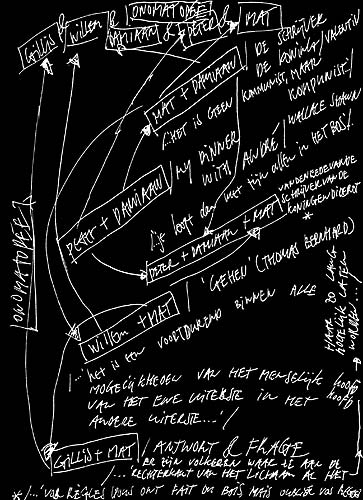 ONOMATOPEE
Gillis & Willem & DAMIAAN & PETER & MAT
MAT + DAMIAAN / DE SCHRIJVER
DE KONING / VALENTIJN
/'HET IS GEEN KOMMUNIST, MAAR
KOMPUNIST!
PETER + DAMIAAN / MY DINNER
WITH ANDRÉ / WALLACE SHAWN
hij loopt dan met zijn allen in HET BOS!
PETER + DAMIAAN + MAT /
VANDENEEDEVANDE
SCHRIJVERVANDE
KONINGENDIDEROT
*
ONOMATOPEE
Willem + MAT / 'GEHEN' (THOMAS BERNHARD)
/...'het is een VOORTDUREND BINNEN ALLE
MOGELIJKHEDEN VAN HET MENSELIJK hoofd
VAN HET ENE UITERSTE IN HET
ANDERE UITERSTE...'/
MAAR ZO LANG
MOGELIJK LATEN
Gillis + MAT / ANTWORT & FRAGE
'ER ZIJN VOLKEREN WAAR ZE AAN DE
...'RECHTERKANT VAN HET LICHAAM AL HET
*/...'VOS RÈGLES VOUS ONT FAIT DU BOIS MAIS